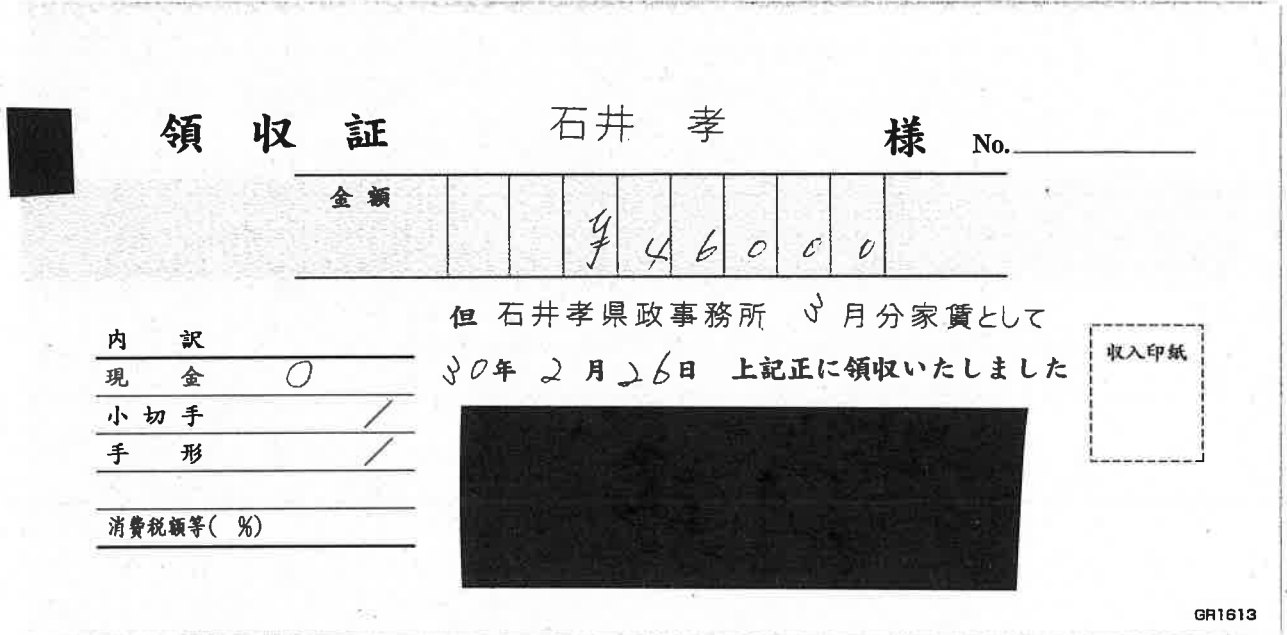 領収証 石井 孝 様 No.
金額 ¥46000
但 石井孝県政事務所 3月分家賃として
30年2月26日 上記正に領収いたしました
収入印紙
内訳
現金 ○
小切手 /
手形 /
消費税額等( %)
GR1613